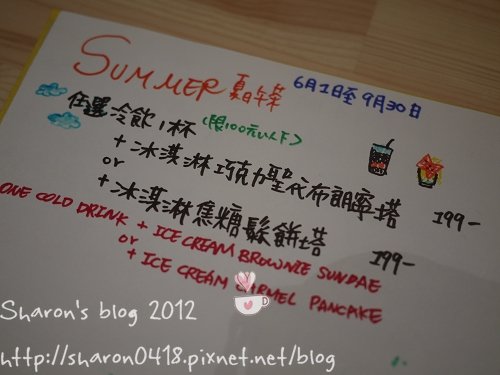 SUMMER 夏日午茶 6月1日至9月30日
任選冷飲1杯 (限100元以下)
+冰淇淋巧克力聖代布朗寧塔 199-
or
+冰淇淋焦糖鬆餅塔 199-
ONE COLD DRINK + ICE CREAM BROWNIE SUNDAE
or
+ ICE CREAM CARMEL PANCAKE
Sharon's blog 2012
http://sharon0418.pixnet.net/blog